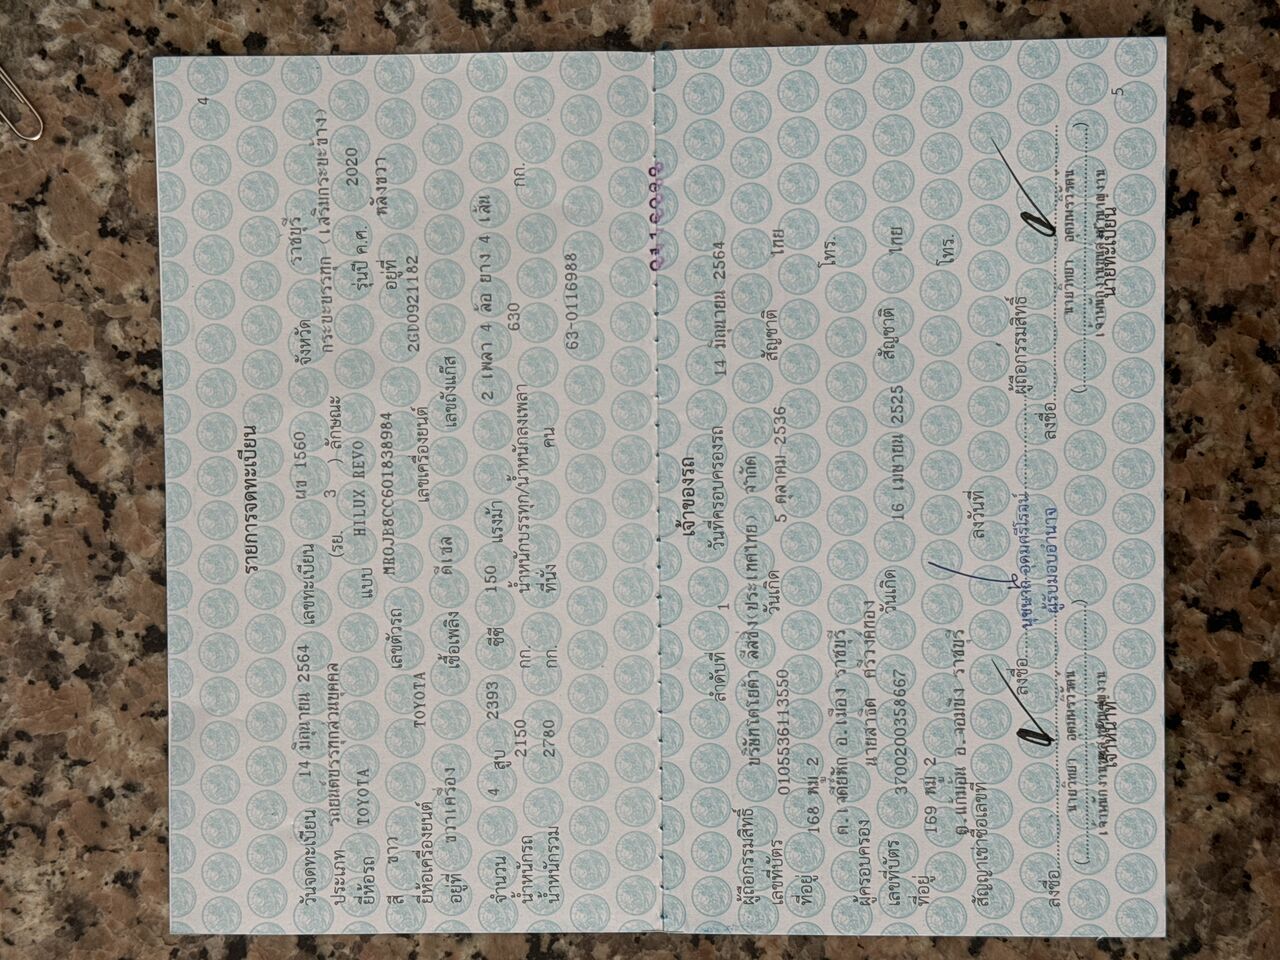 4
รายการจดทะเบียน
วันจดทะเบียน 14 มิถุนายน 2564 เลขทะเบียน ผข 1560 จังหวัด ราชบุรี
ประเภท รถยนต์บรรทุกส่วนบุคคล (รย. 3 ) ลักษณะ กระบะบรรทุก (เสริมกระบะข้าง)
ยี่ห้อรถ TOYOTA แบบ HILUX REVO รุ่นปี ค.ศ. 2020
สี ขาว เลขตัวรถ MR0JB8CC601838984 อยู่ที่ หลังขวา
ยี่ห้อเครื่องยนต์ TOYOTA เลขเครื่องยนต์ 2GD0921182
อยู่ที่ ขวาเครื่อง เชื้อเพลิง ดีเซล เลขถังแก๊ส
จำนวน 4 สูบ 2393 ซีซี 150 แรงม้า 2 เพลา 4 ล้อ ยาง 4 เส้น
น้ำหนักรถ 2150 กก. น้ำหนักบรรทุก/น้ำหนักลงเพลา 630 กก.
น้ำหนักรวม 2780 กก. ที่นั่ง คน
63-0116988
เจ้าของรถ
ลำดับที่ 1 วันที่ครอบครองรถ 14 มิถุนายน 2564
ผู้ถือกรรมสิทธิ์ บริษัทโตโยต้า ลีสซิ่ง(ประเทศไทย) จำกัด
เลขที่บัตร 0105536113550 วันเกิด 5 ตุลาคม 2536 สัญชาติ ไทย
ที่อยู่ 168 หมู่ 2 โทร.
ต.เจดีย์หัก อ.เมือง ราชบุรี
ผู้ครอบครอง นายสาธิต
เลขที่บัตร 3700200358667 วันเกิด 16 เมษายน 2525 สัญชาติ ไทย
ที่อยู่ 169 หมู่ 2 โทร.
ต.แก้มอ้น อ.จอมบึง ราชบุรี
สัญญาเช่าซื้อเลขที่ ลงวันที่
ลงชื่อ ลงชื่อ ผู้ถือกรรมสิทธิ์
ผู้รับมอบอำนาจ ลงชื่อ
นายวิทยา นายวิทยา
เจ้าหน้าที่ นายทะเบียน
5